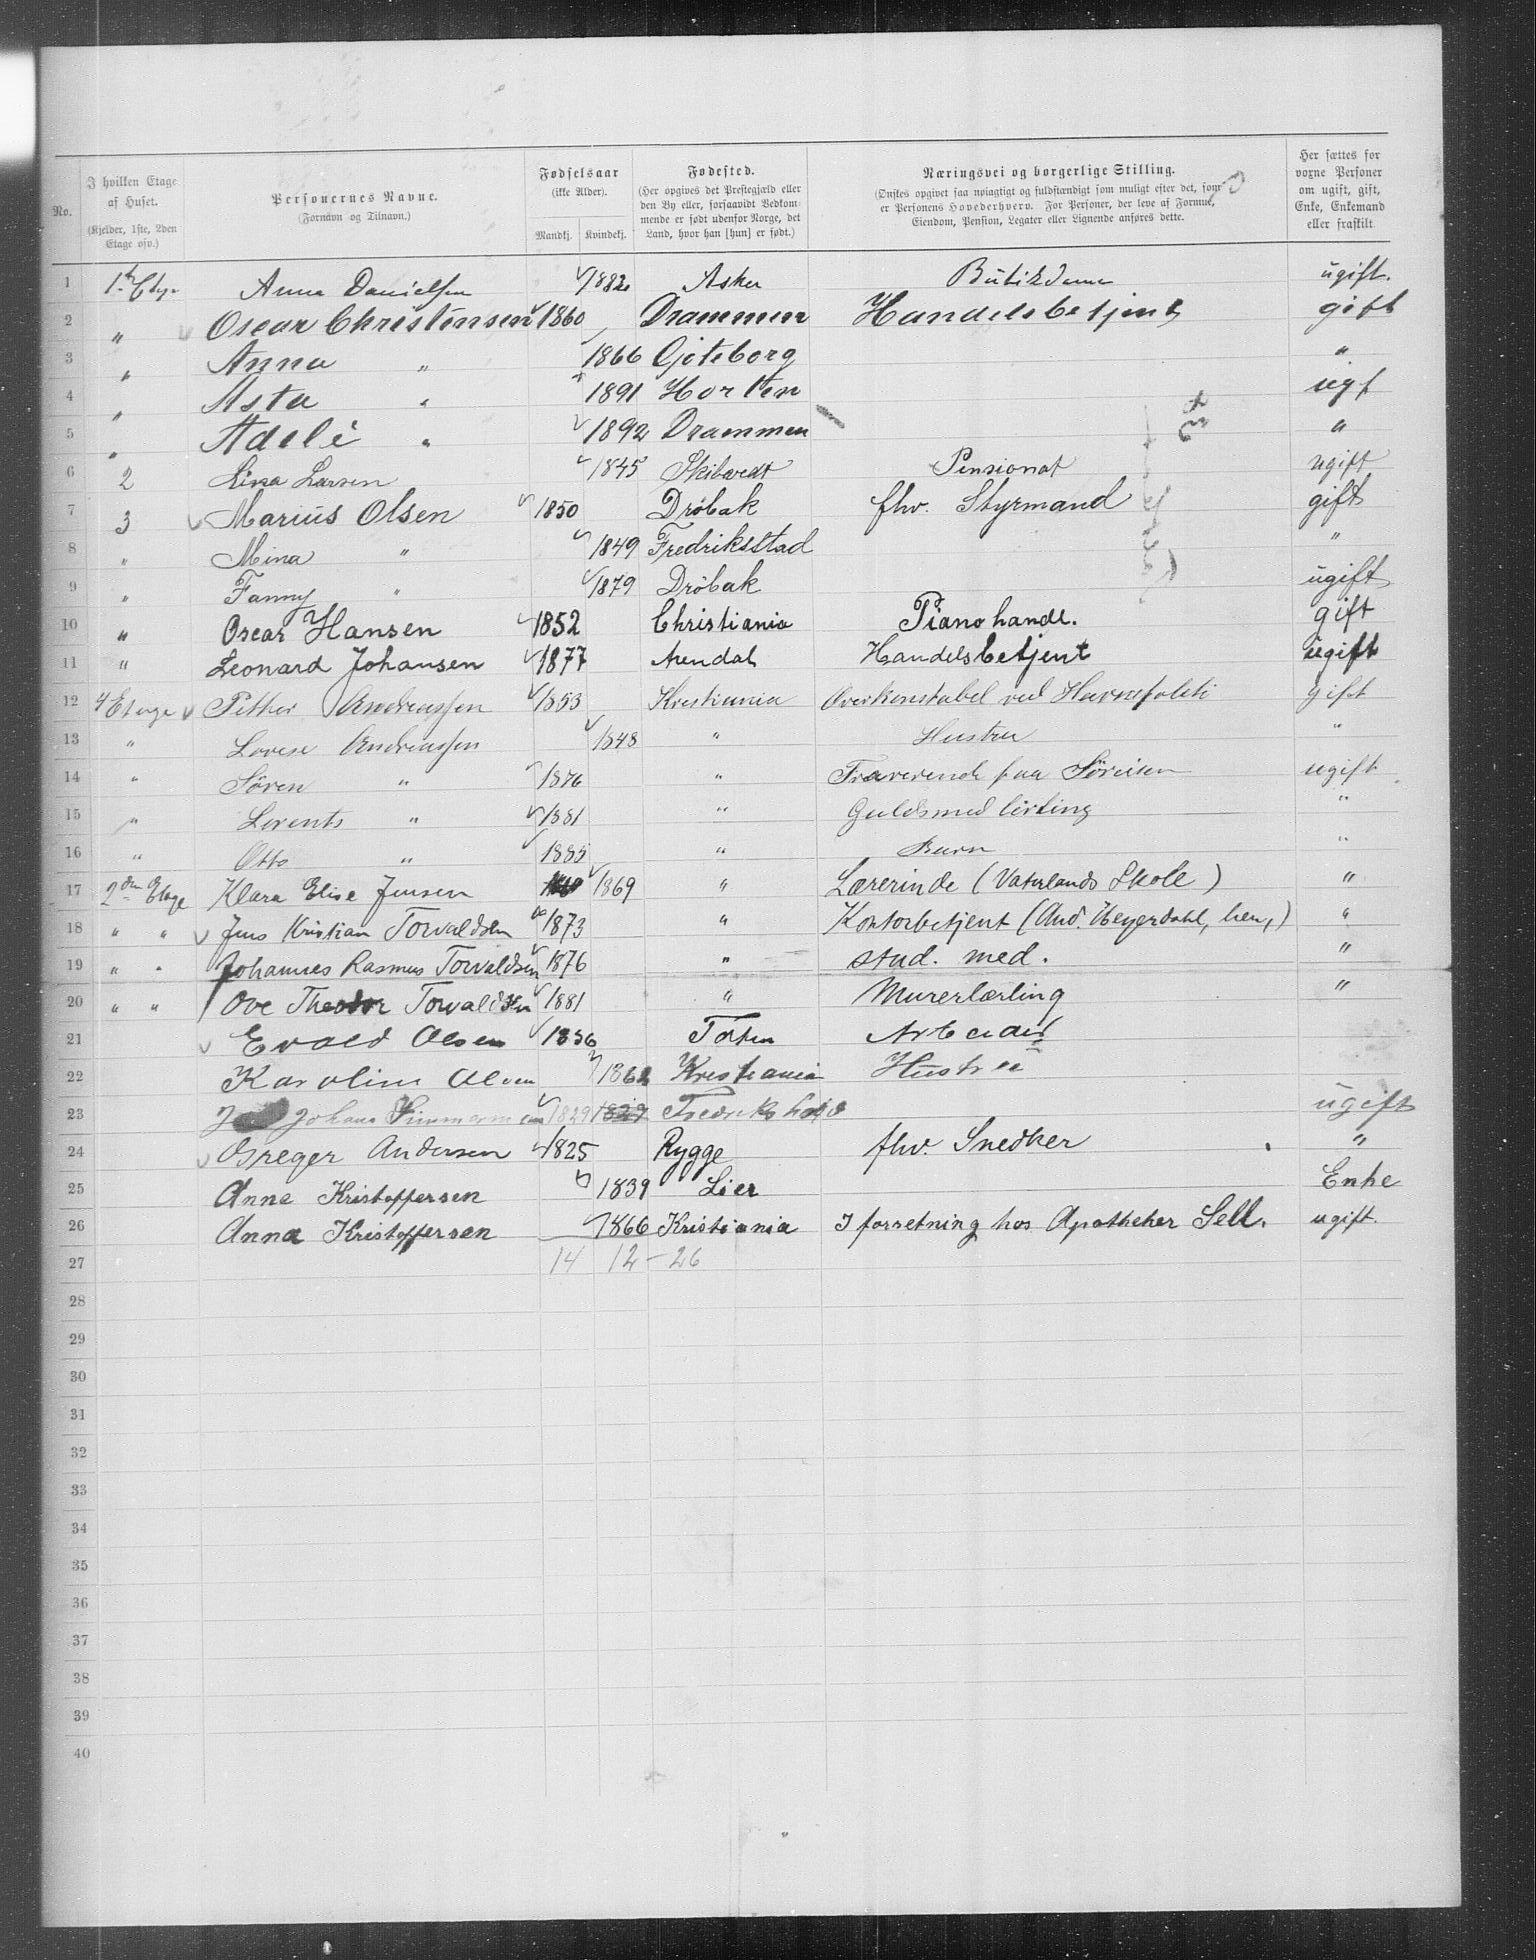 No.
I hvilken Etage af Huset. (Kjelder, 1ste, 2den Etage osv.)
Personernes Navne. (Fornavn og Tilnavn.)
Fødselsaar (ikke Alder). Mandkj. Kvindekj.
Fødested. (Her opgives det Prestegjæld eller den By eller, forsaavidt Vedkommende er født udenfor Norge, det Land, hvor han [hun] er født.)
Næringsvei og borgerlige Stilling. (Ønskes opgivet saa nøiagtigt og fuldstændigt som muligt efter det, som er Personens Hovederhverv. For Personer, der leve af Formue, Eiendom, Pension, Legater eller Lignende anføres dette.
Her sættes for voxne Personer om ugift, gift, Enke, Enkemand eller fraskilt
1 1ste Etge Anna Danielsen 1882 Asker Butikdame ugift.
2 " Oscar Christensen 1860 Drammen Handelsbetjent gift
3 " Anna " 1866 Gjöteborg "
4 " Asta " 1891 Horten ugf
5 " Adele " 1892 Drammen "
6 2 Lina Larsen 1845 Skibtvedt Pensionat ugift
7 3 Marius Olsen 1850 Dröbak fhv. Styrmand gift
8 " Mina " 1849 Fredriksstad "
9 " Fanny " 1879 Dröbak ugift
10 " Oscar Hansen 1852 Christiania Piano handl. gift
11 " Leonard Johansen 1877 Arendal Handelsbetjent ugift
12 4 Etage Petter Andreassen 1853 Kristiania Overkonstabel ved Havnepoliti gift
13 " Lovise Andreassen 1848 " Hustru "
14 " Sören " 1876 " Fraværende paa Söreisen ugift
15 " Lorents " 1881 " Guldsmed lærling "
16 " Otto " 1885 " Barn "
17 2den Etage Klara Elise Jensen 1869 " Lærerinde (Vaterlands Skole) "
18 " " Jens Kristian Torvaldsen 1873 " Kontorbetjent (And. Heyerdahl, hen,) "
19 " " Johannes Rasmus Torvaldsen 1876 " stud. med. "
20 " " Ove Theodor Torvaldsen 1881 " Murerlærling "
21 Evald Olsen 1856 Toten Arbeider
22 Karoline Olsen 1862 Kristiania Hustru
23 Johan Simmermann 1829 1829 Fredrikshald ugift
24 Greger Andersen 1825 Rygge fhv. Snedker "
25 Anne Kristoffersen 1839 Lier Enke
26 Anna Kristoffersen 1866 Kristiania I forretning hos Apotheker Sell. ugift.
27 14 12 - 26
28
29
30
31
32
33
34
35
36
37
38
39
40